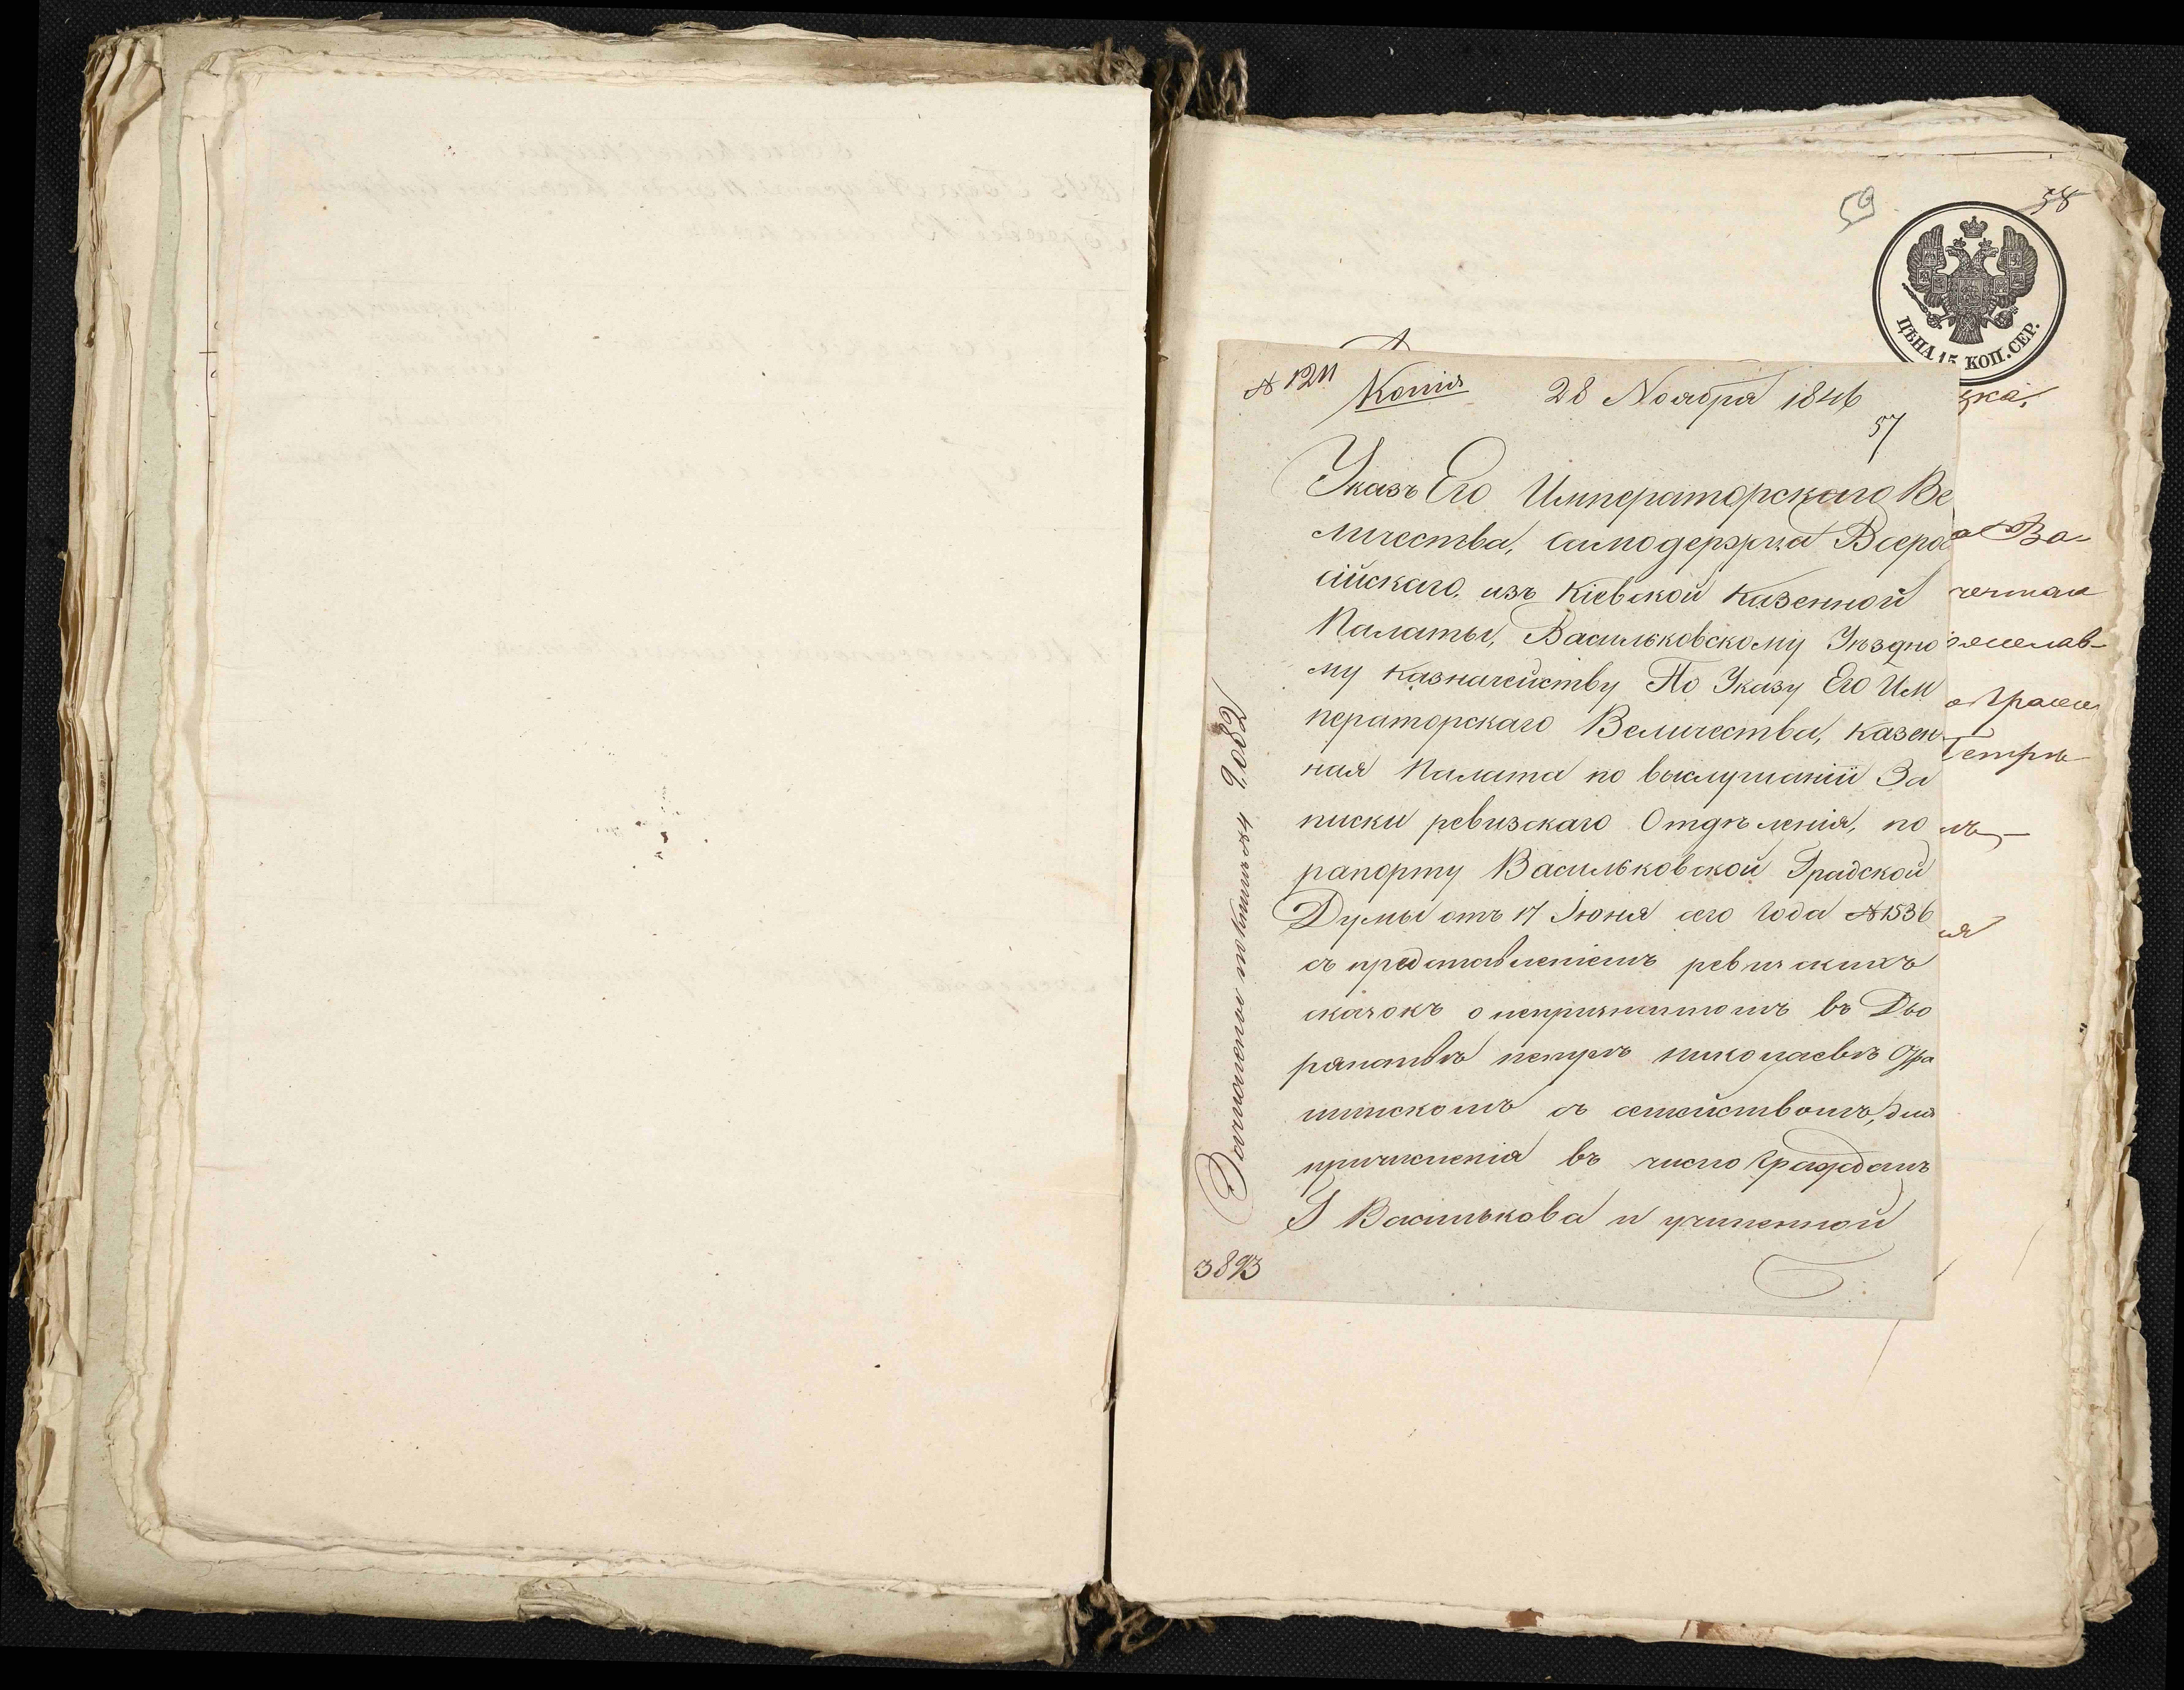 59
58
ЦѢНА 15 КОП. СЕР.
№ 1211
Копія
28 Ноября 1846
57
Указъ Его Императорскаго Ве
личества, Самодержца Всеро
сійскаго, изъ Кіевской Казенной
Палаты, Васильковскому Уѣздно
му Казначейству По Указу Его Им
ператорскаго Величества, Казен
ная Палата по выслушаніи За
писки ревизскаго Отдѣленія, по
рапорту Васильковской Градской
Думы отъ 17 Іюня сего Года № 1536
съ представленіемъ ревизскихъ
сказокъ о непризнанномъ въ Дво
рянствѣ петрѣ николаевѣ
съ семействомъ, для
причисленія въ число Гражданъ
Г Василькова и учиненной
2082
3893
зка,
Ва-
Петрѣ